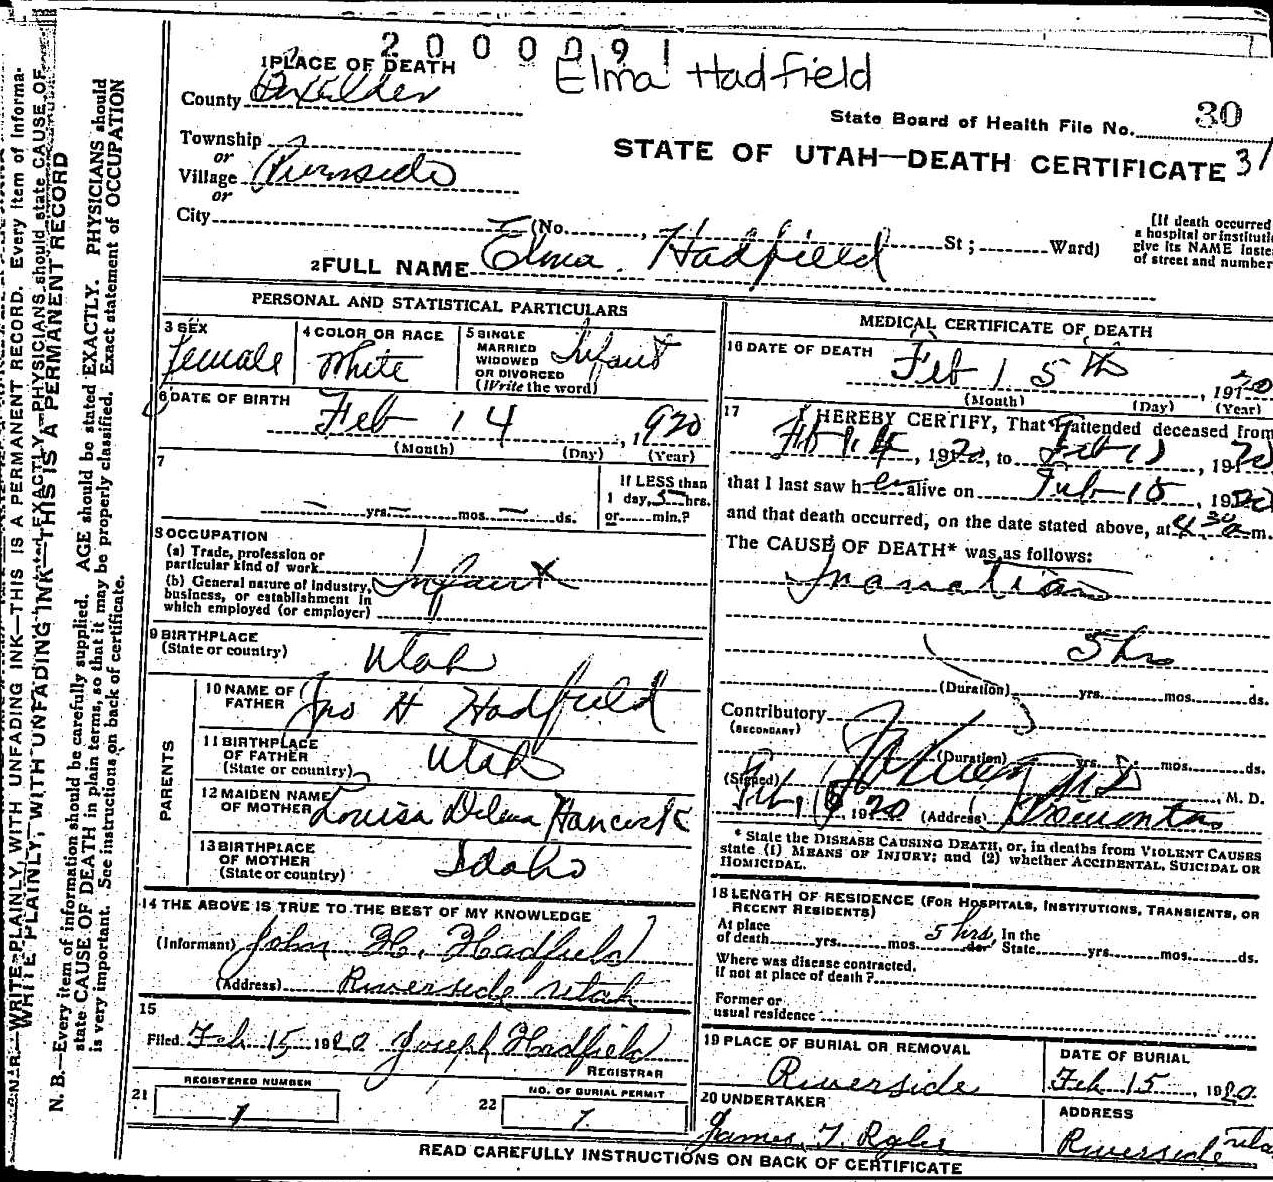 2000091
Elma Hadfield
1 PLACE OF DEATH
County Box Elder
State Board of Health File No. 30
31
Township
or
Village Riverside
or
City
STATE OF UTAH—DEATH CERTIFICATE
(No. St; Ward)
(If death occurred
a hospital or instituti
give its NAME inste
of street and number
2 FULL NAME Elma Hadfield
PERSONAL AND STATISTICAL PARTICULARS
3 SEX
Female
4 COLOR OR RACE
White
5 SINGLE
MARRIED
WIDOWED
OR DIVORCED
(Write the word)
Infant
6 DATE OF BIRTH
Feb 14, 1920
(Month) (Day) (Year)
7
yrs. mos. ds.
If LESS than
1 day, 5 hrs.
or min.?
8 OCCUPATION
(a) Trade, profession or
particular kind of work
(b) General nature of industry,
business, or establishment in
which employed (or employer)
Infant
9 BIRTHPLACE
(State or country)
Utah
PARENTS
10 NAME OF
FATHER
Jno H Hadfield
11 BIRTHPLACE
OF FATHER
(State or country)
Utah
12 MAIDEN NAME
OF MOTHER
Louisa Delena Hancock
13 BIRTHPLACE
OF MOTHER
(State or country)
Idaho
14 THE ABOVE IS TRUE TO THE BEST OF MY KNOWLEDGE
(Informant) John H. Hadfield
(Address) Riverside Utah
15
Filed Feb 15 1920 Joseph Hadfield
REGISTRAR
21 REGISTERED NUMBER
1
22 NO. OF BURIAL PERMIT
1
MEDICAL CERTIFICATE OF DEATH
16 DATE OF DEATH
Feb 15th, 1920
(Month) (Day) (Year)
17 I HEREBY CERTIFY, That I attended deceased from
Feb 14, 1920, to Feb 15, 1920
that I last saw her alive on Feb 15, 1920
and that death occurred, on the date stated above, at 4 30 a m.
The CAUSE OF DEATH* was as follows:
Inanition
5 hrs
(Duration) yrs. mos. ds.
Contributory
(SECONDARY)
(Duration) yrs. mos. ds.
(Signed) M D, M. D.
Feb, 1920 (Address) Tremonton
* State the DISEASE CAUSING DEATH, or, in deaths from VIOLENT CAUSES
state (1) MEANS OF INJURY; and (2) whether ACCIDENTAL, SUICIDAL OR
HOMICIDAL.
18 LENGTH OF RESIDENCE (FOR HOSPITALS, INSTITUTIONS, TRANSIENTS, OR
RECENT RESIDENTS)
At place
of death yrs. mos. 5 hrs ds. In the
State yrs. mos. ds.
Where was disease contracted,
if not at place of death?
Former or
usual residence
19 PLACE OF BURIAL OR REMOVAL
Riverside
DATE OF BURIAL
Feb 15, 1920
20 UNDERTAKER
James T.
ADDRESS
Riverside Uta
READ CAREFULLY INSTRUCTIONS ON BACK OF CERTIFICATE
WRITE PLAINLY, WITH UNFADING INK—THIS IS A PERMANENT RECORD
N. B.—Every item of information should be carefully supplied. AGE should be stated EXACTLY. PHYSICIANS should
state CAUSE OF DEATH in plain terms, so that it may be properly classified. Exact statement of OCCUPATION
is very important. See instructions on back of certificate.